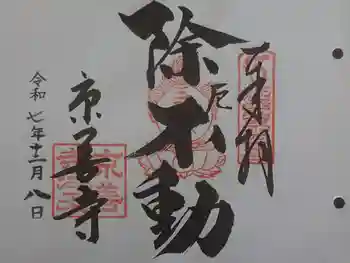 奉拝
除厄不動
京善寺
令和七年十二月八日